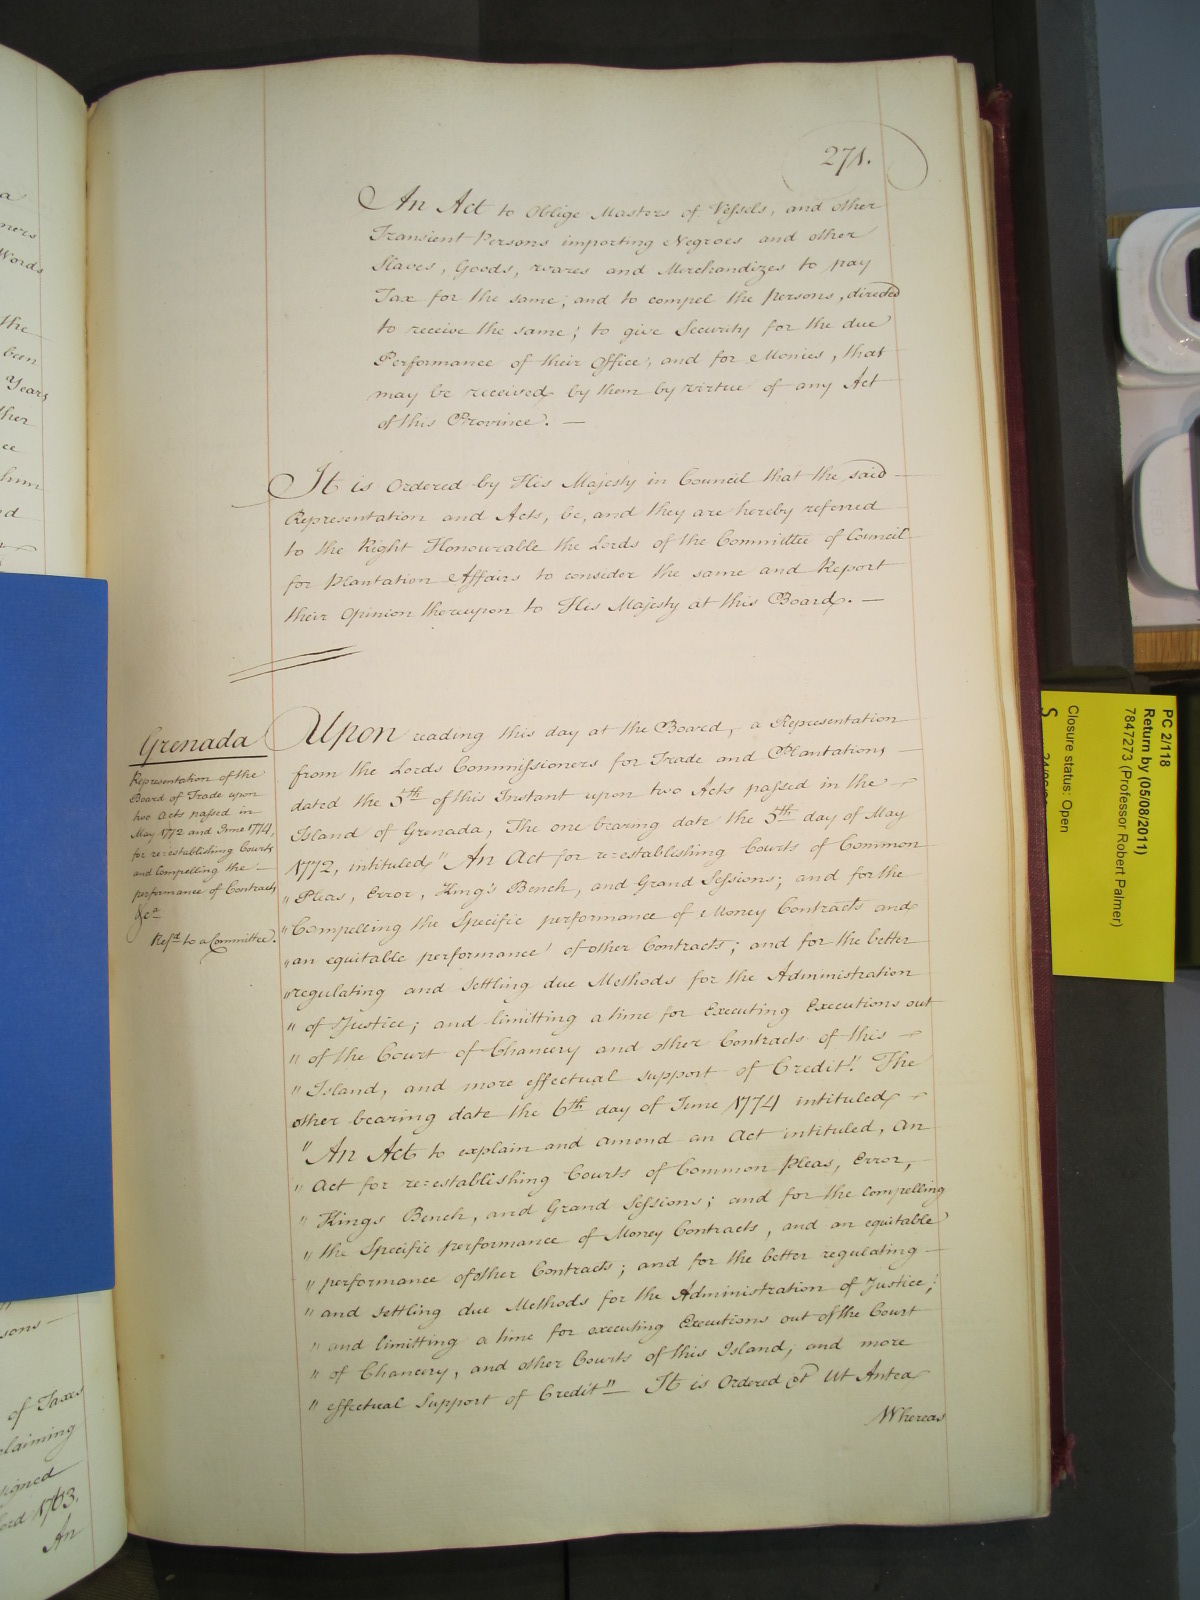 271.
An Act to Oblige Masters of Vessels, and other
Transient Persons importing Negroes and other
Slaves, Goods, wares and Merchandizes to pay
Tax for the same; and to compel the Persons, directed
to receive the same; to give Security for the due
Performance of their Office; and for Monies, that
may be received by them by virtue of any Act
of this Province. —
It is Ordered by His Majesty in Council that the said
Representation and Acts, be, and they are hereby referred
to the Right Honourable the Lords of the Committee of Council
for Plantation Affairs to consider the same and Report
their Opinion thereupon to His Majesty at this Board. —
Grenada
Representation of the
Board of Trade upon
two Acts passed in
May 1772 and June 1774,
for re=establishing Courts
and compelling the —
performance of Contracts
&ca
Refd to a Committee.
Upon reading this day at the Board, a Representation
from the Lords Commissioners for Trade and Plantations —
dated the 5th of this Instant upon two Acts passed in the —
Island of Grenada, The one bearing date the 5th day of May
1772, intituled "An Act for re=establishing Courts of Common
" Pleas, Error, King's Bench, and Grand Sessions; and for the
"Compelling the Specific performance of Money Contracts and
"an equitable performance of other Contracts; and for the better
"regulating and settling due Methods for the Administration
" of Justice; and limitting a time for Executing Executions out
" of the Court of Chancery and other Contracts of this —
" Island, and more effectual support of Credit." The
other bearing date the 6th day of June 1774 intituled —
"An Act to explain and amend an Act intituled, An
" Act for re=establishing Courts of Common Pleas, Error, —
" Kings Bench, and Grand Sessions; and for the compelling
" the Specific performance of Money Contracts, and an equitable
" performance of other Contracts; and for the better regulating —
" and settling due Methods for the Administration of Justice;
" and limitting a time for executing Executions out of the Court
" of Chancery, and other Courts of this Island; and more
" effectual Support of Credit" — It is Ordered &ca Ut Antea
Whereas
a
Words
the
been
Years
ther
ce
him
of Taxes
claiming
signed
1763.
An
PC 2/118
Return by (05/08/2011)
7847273 (Professor Robert Palmer)
Closure status: Open
S